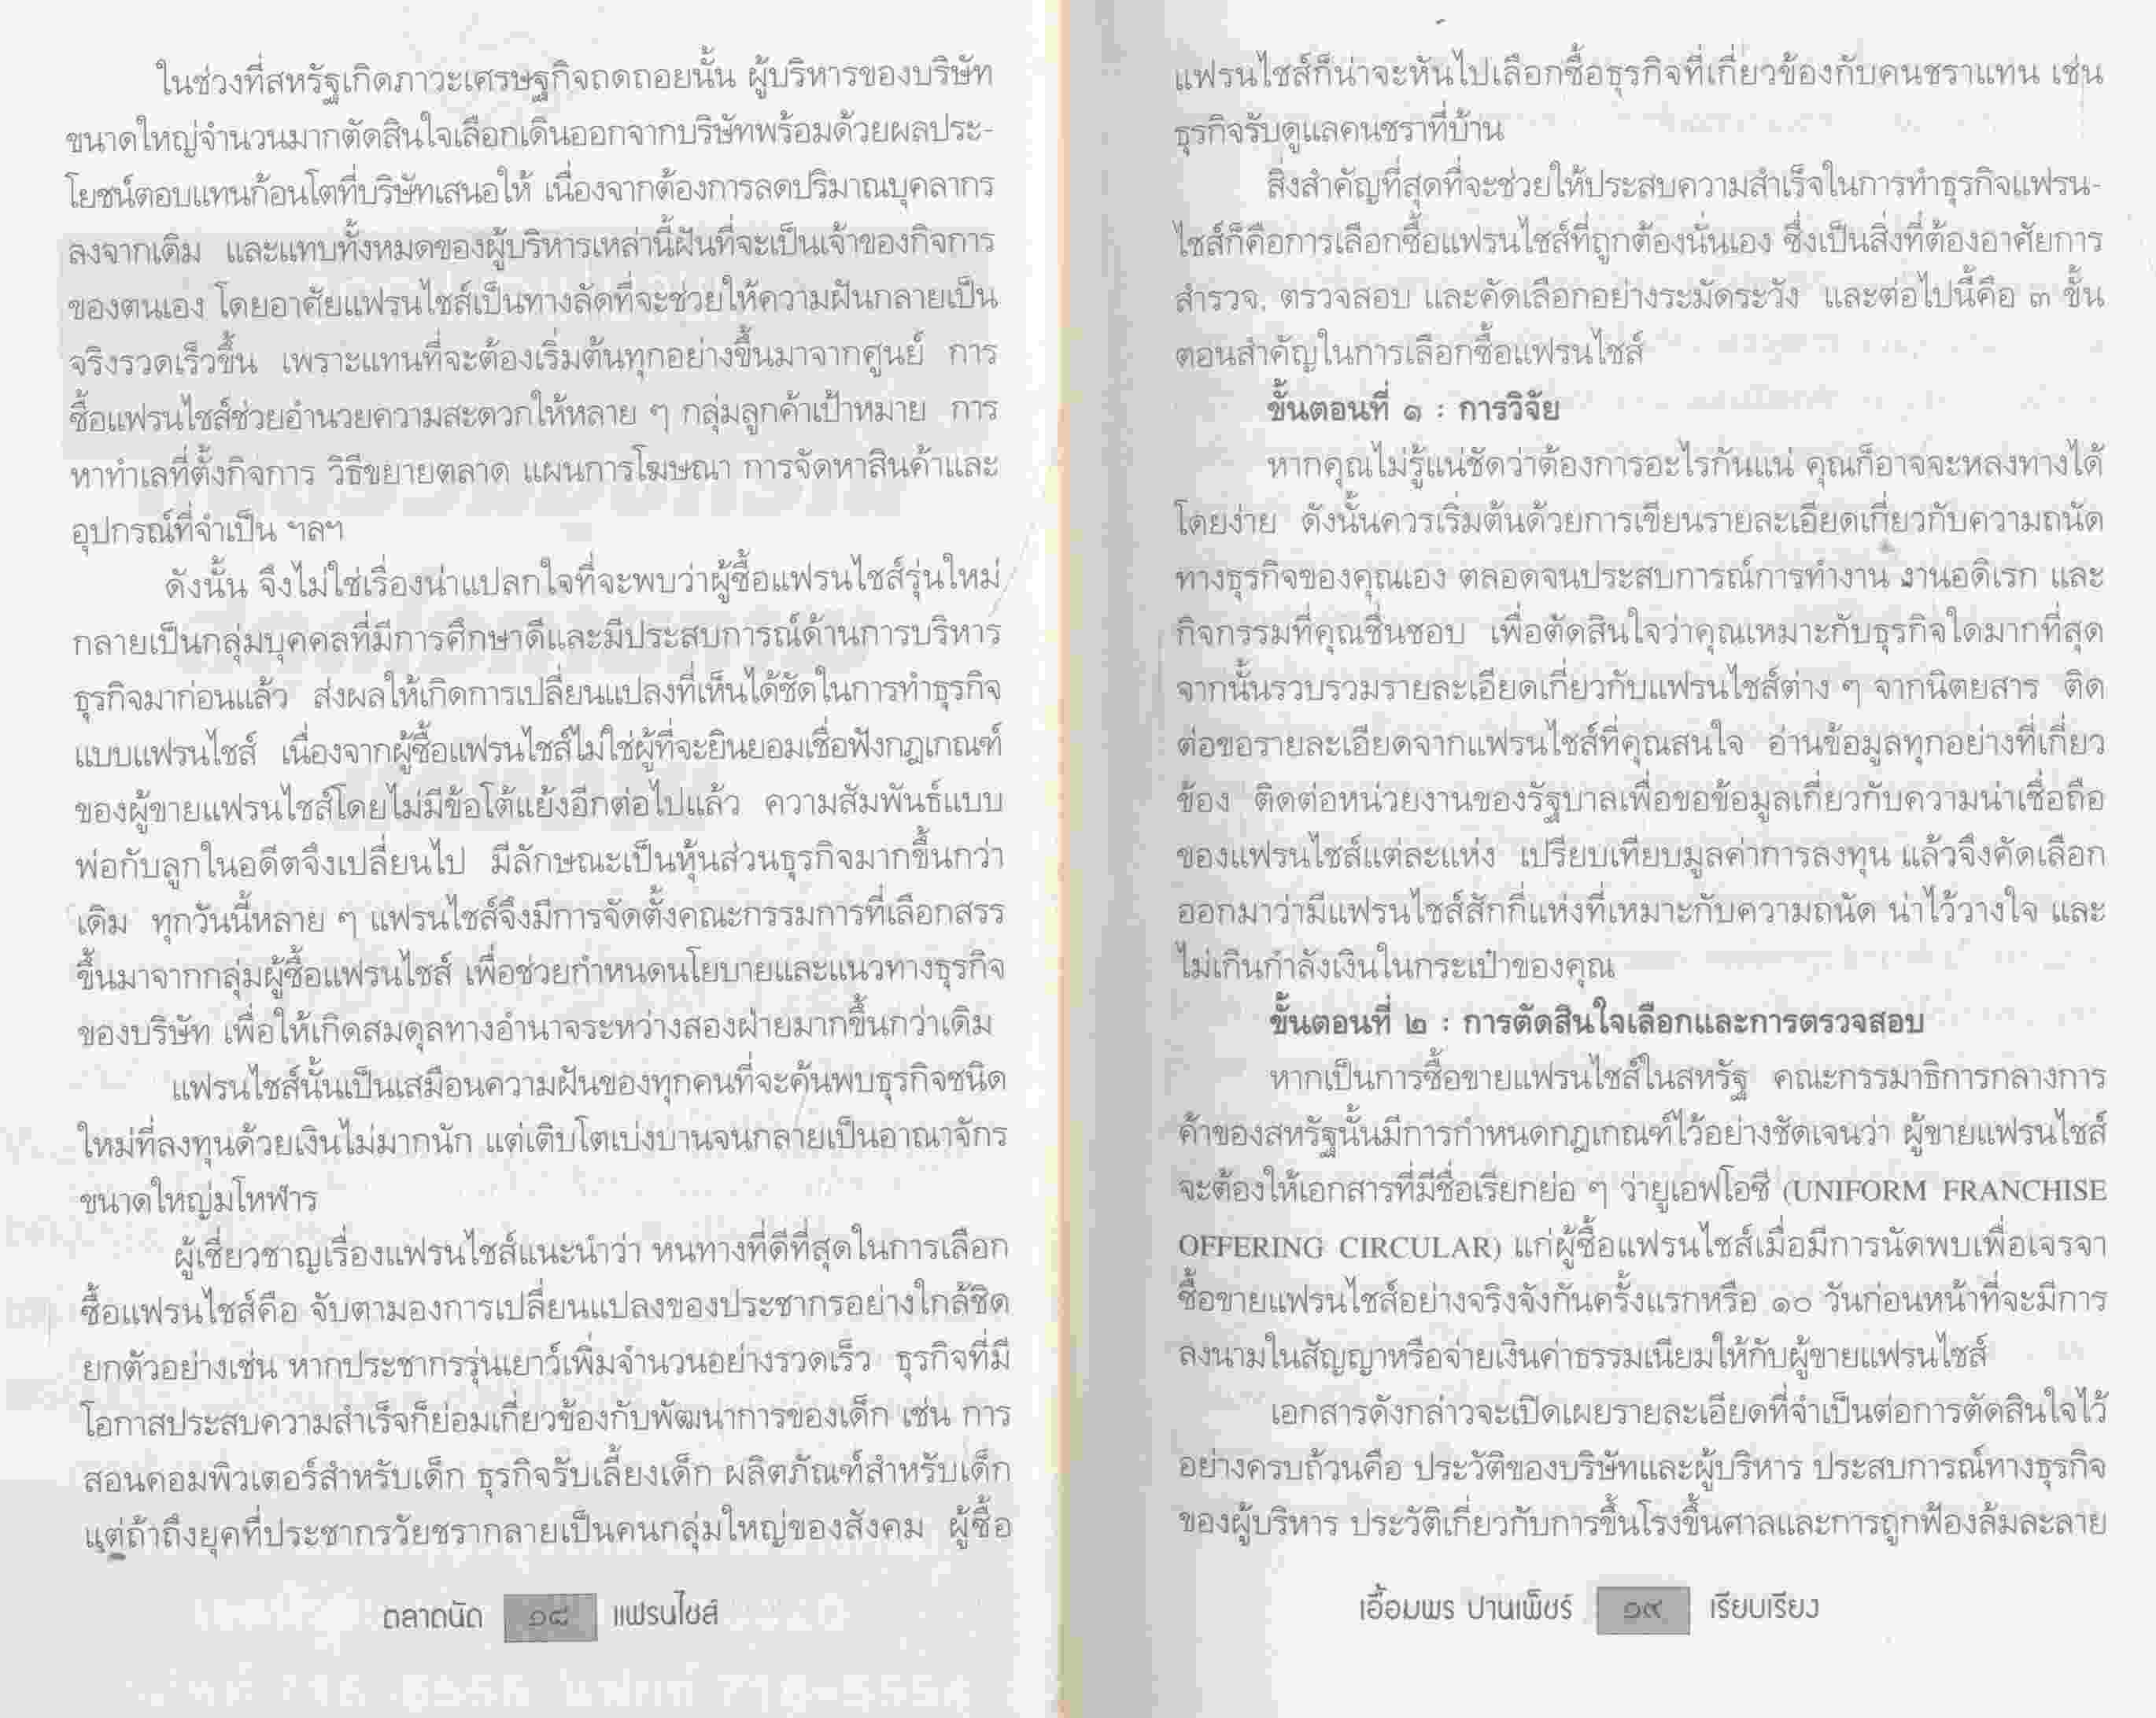 ในช่วงที่สหรัฐเกิดภาวะเศรษฐกิจถดถอยนั้น ผู้บริหารของบริษัท
ขนาดใหญ่จำนวนมากตัดสินใจเลือกเดินออกจากบริษัทพร้อมด้วยผลประ-
โยชน์ตอบแทนก้อนโตที่บริษัทเสนอให้ เนื่องจากต้องการลดปริมาณบุคลากร
ลงจากเดิม และแทบทั้งหมดของผู้บริหารเหล่านี้ฝันที่จะเป็นเจ้าของกิจการ
ของตนเอง โดยอาศัยแฟรนไชส์เป็นทางลัดที่จะช่วยให้ความฝันกลายเป็น
จริงรวดเร็วขึ้น เพราะแทนที่จะต้องเริ่มต้นทุกอย่างขึ้นมาจากศูนย์ การ
ซื้อแฟรนไชส์ช่วยอำนวยความสะดวกให้หลาย ๆ กลุ่มลูกค้าเป้าหมาย การ
หาทำเลที่ตั้งกิจการ วิธีขยายตลาด แผนการโฆษณา การจัดหาสินค้าและ
อุปกรณ์ที่จำเป็น ฯลฯ
ดังนั้น จึงไม่ใช่เรื่องน่าแปลกใจที่จะพบว่าผู้ซื้อแฟรนไชส์รุ่นใหม่
กลายเป็นกลุ่มบุคคลที่มีการศึกษาดีและมีประสบการณ์ด้านการบริหาร
ธุรกิจมาก่อนแล้ว ส่งผลให้เกิดการเปลี่ยนแปลงที่เห็นได้ชัดในการทำธุรกิจ
แบบแฟรนไชส์ เนื่องจากผู้ซื้อแฟรนไชส์ไม่ใช่ผู้ที่จะยินยอมเชื่อฟังกฎเกณฑ์
ของผู้ขายแฟรนไชส์โดยไม่มีข้อโต้แย้งอีกต่อไปแล้ว ความสัมพันธ์แบบ
พ่อกับลูกในอดีตจึงเปลี่ยนไป มีลักษณะเป็นหุ้นส่วนธุรกิจมากขึ้นกว่า
เดิม ทุกวันนี้หลาย ๆ แฟรนไชส์จึงมีการจัดตั้งคณะกรรมการที่เลือกสรร
ขึ้นมาจากกลุ่มผู้ซื้อแฟรนไชส์ เพื่อช่วยกำหนดนโยบายและแนวทางธุรกิจ
ของบริษัท เพื่อให้เกิดสมดุลทางอำนาจระหว่างสองฝ่ายมากขึ้นกว่าเดิม
แฟรนไชส์นั้นเป็นเสมือนความฝันของทุกคนที่จะค้นพบธุรกิจชนิด
ใหม่ที่ลงทุนด้วยเงินไม่มากนัก แต่เติบโตเบ่งบานจนกลายเป็นอาณาจักร
ขนาดใหญ่มโหฬาร
ผู้เชี่ยวชาญเรื่องแฟรนไชส์แนะนำว่า หนทางที่ดีที่สุดในการเลือก
ซื้อแฟรนไชส์คือ จับตามองการเปลี่ยนแปลงของประชากรอย่างใกล้ชิด
ยกตัวอย่างเช่น หากประชากรรุ่นเยาว์เพิ่มจำนวนอย่างรวดเร็ว ธุรกิจที่มี
โอกาสประสบความสำเร็จก็ย่อมเกี่ยวข้องกับพัฒนาการของเด็ก เช่น การ
สอนคอมพิวเตอร์สำหรับเด็ก ธุรกิจรับเลี้ยงเด็ก ผลิตภัณฑ์สำหรับเด็ก
แต่ถ้าถึงยุคที่ประชากรวัยชรากลายเป็นคนกลุ่มใหญ่ของสังคม ผู้ซื้อ
ตลาดนัด ๑๘ แฟรนไชส์
แฟรนไชส์ก็น่าจะหันไปเลือกซื้อธุรกิจที่เกี่ยวข้องกับคนชราแทน เช่น
ธุรกิจรับดูแลคนชราที่บ้าน
สิ่งสำคัญที่สุดที่จะช่วยให้ประสบความสำเร็จในการทำธุรกิจแฟรน-
ไชส์ก็คือการเลือกซื้อแฟรนไชส์ที่ถูกต้องนั่นเอง ซึ่งเป็นสิ่งที่ต้องอาศัยการ
สำรวจ, ตรวจสอบ และคัดเลือกอย่างระมัดระวัง และต่อไปนี้คือ ๓ ขั้น
ตอนสำคัญในการเลือกซื้อแฟรนไชส์
ขั้นตอนที่ ๑ : การวิจัย
หากคุณไม่รู้แน่ชัดว่าต้องการอะไรกันแน่ คุณก็อาจจะหลงทางได้
โดยง่าย ดังนั้นควรเริ่มต้นด้วยการเขียนรายละเอียดเกี่ยวกับความถนัด
ทางธุรกิจของคุณเอง ตลอดจนประสบการณ์การทำงาน งานอดิเรก และ
กิจกรรมที่คุณชื่นชอบ เพื่อตัดสินใจว่าคุณเหมาะกับธุรกิจใดมากที่สุด
จากนั้นรวบรวมรายละเอียดเกี่ยวกับแฟรนไชส์ต่าง ๆ จากนิตยสาร ติด
ต่อขอรายละเอียดจากแฟรนไชส์ที่คุณสนใจ อ่านข้อมูลทุกอย่างที่เกี่ยว
ข้อง ติดต่อหน่วยงานของรัฐบาลเพื่อขอข้อมูลเกี่ยวกับความน่าเชื่อถือ
ของแฟรนไชส์แต่ละแห่ง เปรียบเทียบมูลค่าการลงทุน แล้วจึงคัดเลือก
ออกมาว่ามีแฟรนไชส์สักกี่แห่งที่เหมาะกับความถนัด น่าไว้วางใจ และ
ไม่เกินกำลังเงินในกระเป๋าของคุณ
ขั้นตอนที่ ๒ : การตัดสินใจเลือกและการตรวจสอบ
หากเป็นการซื้อขายแฟรนไชส์ในสหรัฐ คณะกรรมาธิการกลางการ
ค้าของสหรัฐนั้นมีการกำหนดกฎเกณฑ์ไว้อย่างชัดเจนว่า ผู้ขายแฟรนไชส์
จะต้องให้เอกสารที่มีชื่อเรียกย่อ ๆ ว่ายูเอฟโอซี (UNIFORM FRANCHISE
OFFERING CIRCULAR) แก่ผู้ซื้อแฟรนไชส์เมื่อมีการนัดพบเพื่อเจรจา
ซื้อขายแฟรนไชส์อย่างจริงจังกันครั้งแรกหรือ ๑๐ วันก่อนหน้าที่จะมีการ
ลงนามในสัญญาหรือจ่ายเงินค่าธรรมเนียมให้กับผู้ขายแฟรนไชส์
เอกสารดังกล่าวจะเปิดเผยรายละเอียดที่จำเป็นต่อการตัดสินใจไว้
อย่างครบถ้วนคือ ประวัติของบริษัทและผู้บริหาร ประสบการณ์ทางธุรกิจ
ของผู้บริหาร ประวัติเกี่ยวกับการขึ้นโรงขึ้นศาลและการถูกฟ้องล้มละลาย
เอื้อมพร ปานเพ็ชร์ ๑๙ เรียบเรียง